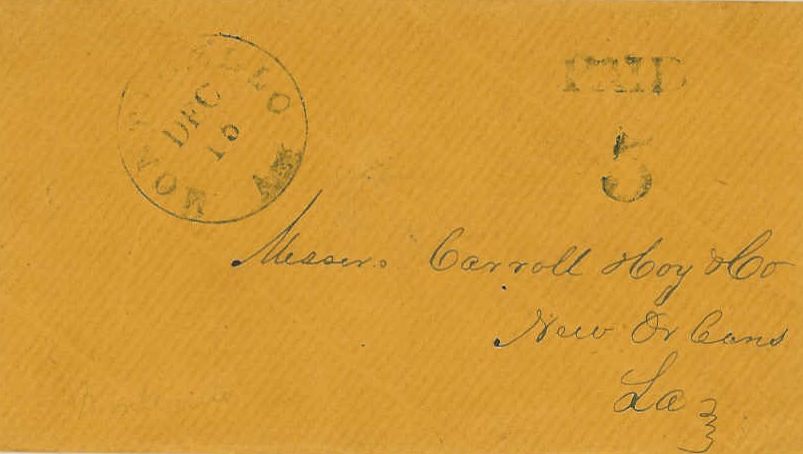 MONTICELLO Ark
DEC
15
PAID
5
Messers. Carroll Hoy & Co
New Orleans
La